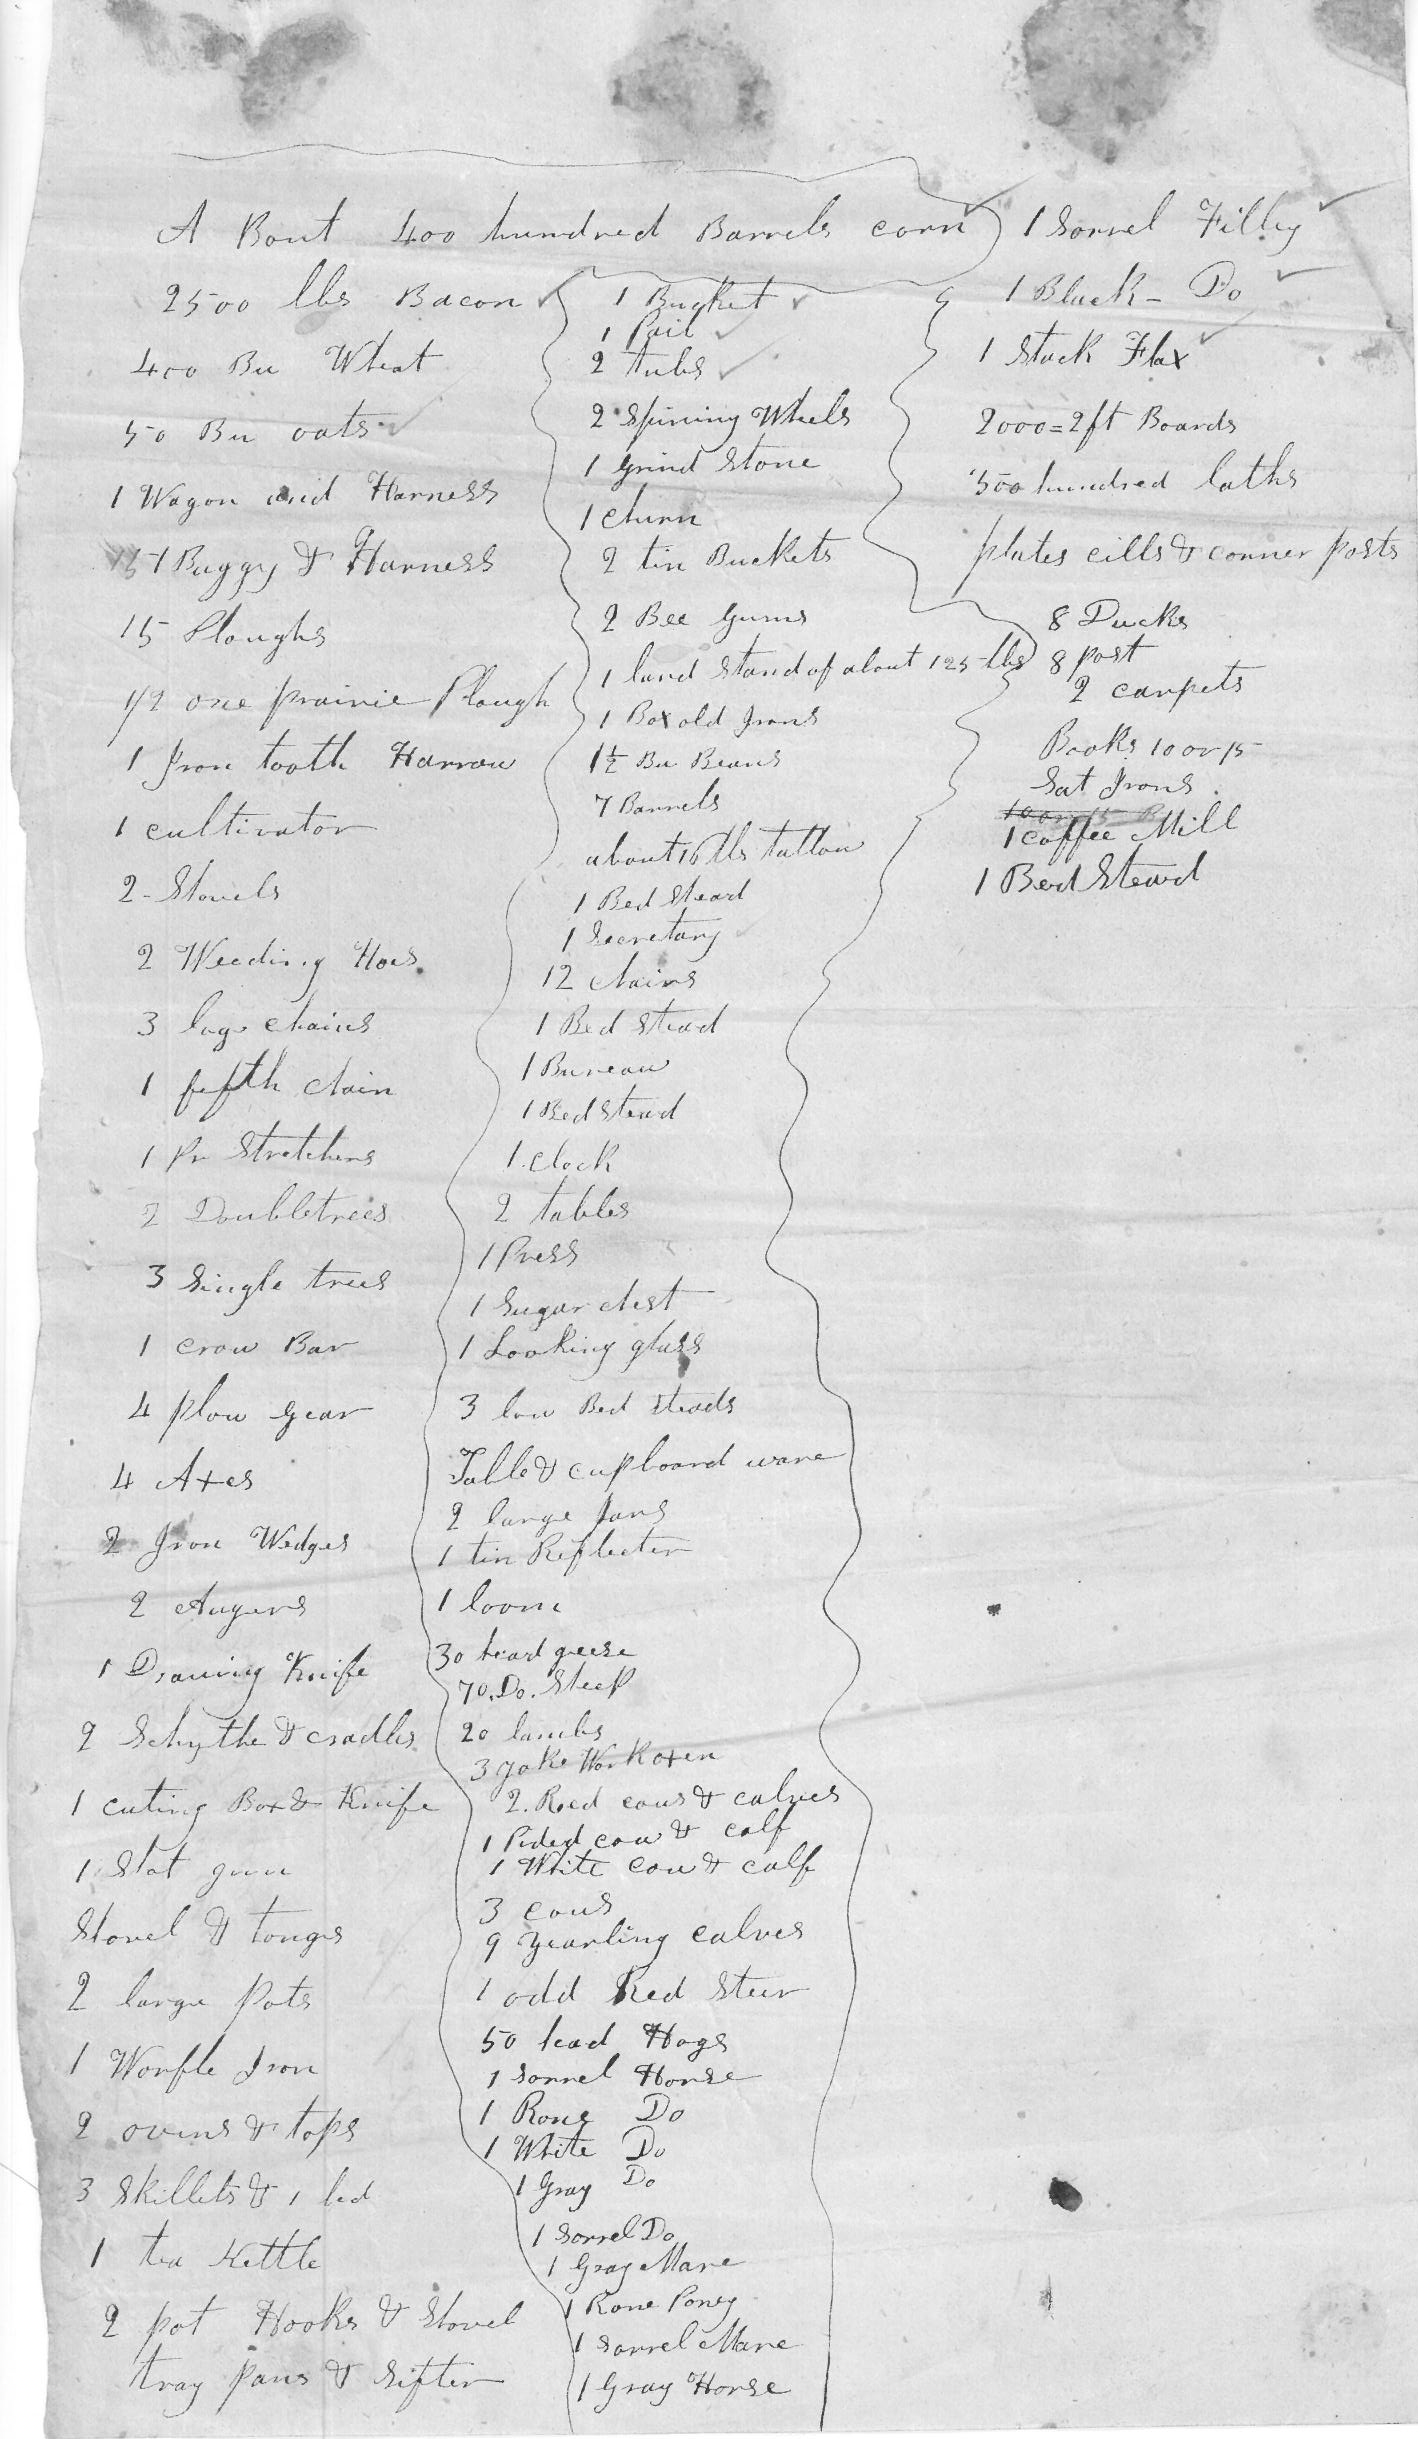 A Bout 400 hundred Barrels corn
2500 lbs Bacon
400 Bu Wheat
50 Bu oats
1 Wagon and Harness
1 Buggy & Harness
15 Ploughs
1/2 one prairie Plough
1 Iron tooth Harrow
1 cultivator
2 Shovels
2 Weeding Hoes
3 log chains
1 fifth chain
1 Pr Stretchers
2 Doubletrees
3 Single trees
1 Crow Bar
4 plow gear
4 Axes
2 Iron Wedges
2 Augers
1 Drawing Knife
2 Schythe & cradles
1 cuting Box & Knife
1 Shot gun
Shovel & tongs
2 large Pots
1 Worfle Iron
2 ovens & tops
3 Skillets & 1 led
1 tea Kettle
2 pot Hooks & Shovel
tray pans & Sifter
1 Bugket
1 Pail
2 tubs
2 Spining Wheels
1 grind Stone
1 churn
2 tin Buckets
2 Bee gums
1 lard Stand of about 125 lbs
1 Box old Irons
1½ Bu Beans
7 Barrels
about lbs tallow
1 Bed Stead
1 Secretary
12 chairs
1 Bed Stead
1 Bureau
1 Bed Stead
1 clock
2 tables
1 Press
1 Sugar chest
1 Looking glass
3 low Bed Steads
Table & cupboard ware
2 large Jars
1 tin Reflecter
1 loom
30 head geese
70 Do. Sheep
20 lambs
3 yoke Work oxen
2 Red cows & calves
1 Pided cow & calf
1 White cow & calf
3 cows
9 yearling calves
1 odd Red Steer
50 head Hogs
1 Sorrel Horse
1 Rone Do
1 White Do
1 Gray Do
1 Sorrel Do
1 Gray Mare
1 Rone Poney
1 Sorrel Mare
1 Gray Horse
1 Sorrel Filley
1 Black - Do
1 Stack Flax
2000=2ft Boards
500 hundred laths
plates cills & conner posts
8 Ducks
8 post
2 carpets
Books 10 or 15
Sat Irons
10 or 15 B
1 coffee Mill
1 Bed Steard